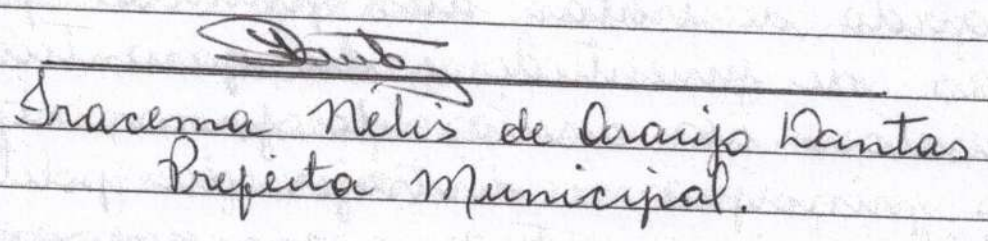 Iracema Nélis de Araujo Dantas
Prefeita Municipal.